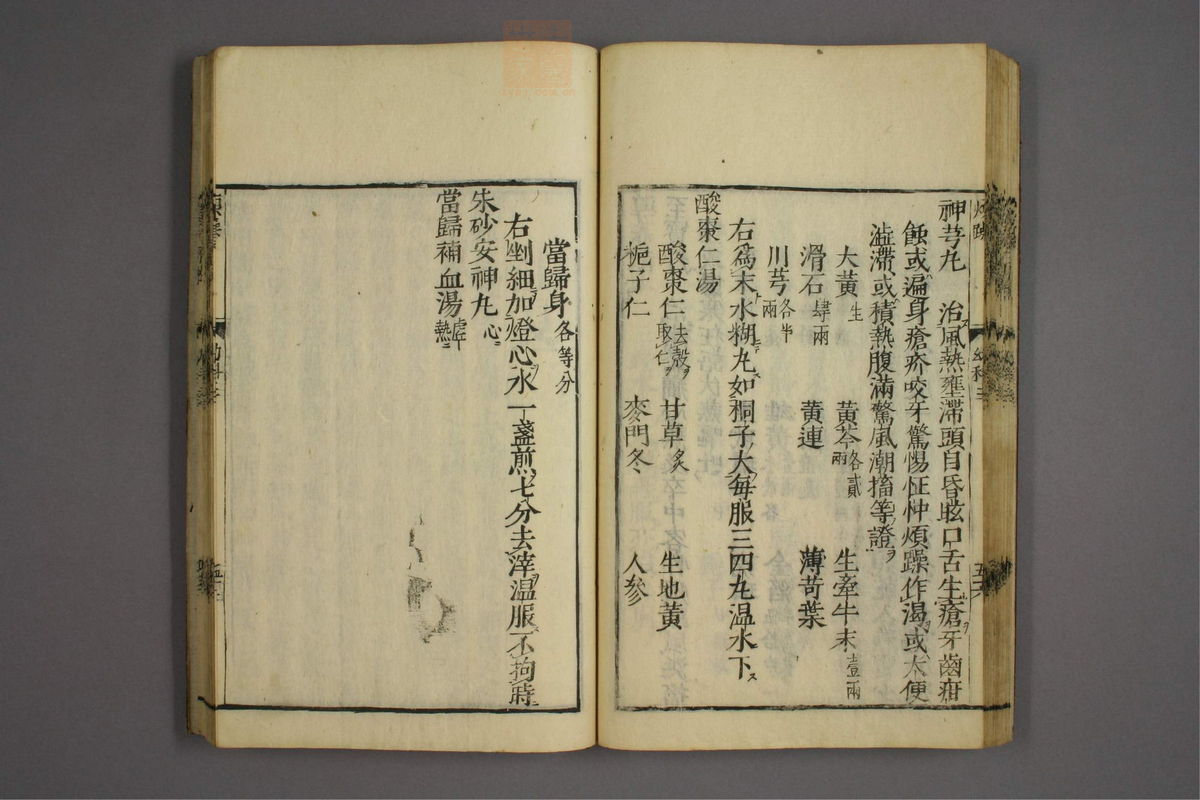 神芎丸　治風熱壅滯頭目昏眩口舌生瘡牙齒疳
蝕或遍身瘡疥咬牙驚惕怔忡煩躁作渴或大便
澁滯或積熱腹滿驚風潮搐等證
大黃生　黃芩各貳兩　生牽牛末壹兩
滑石肆兩　黃連　薄苛葉
川芎各半兩
右爲末水糊丸如桐子大每服三四丸温水下
酸棗仁湯
酸棗仁去殼取仁　甘草炙　生地黃
梔子仁　麥門冬　人參
當歸身各等分
右剉細加燈心水一盞煎七分去滓温服不拘時
朱砂安神丸心
當歸補血湯虛熱
幼科